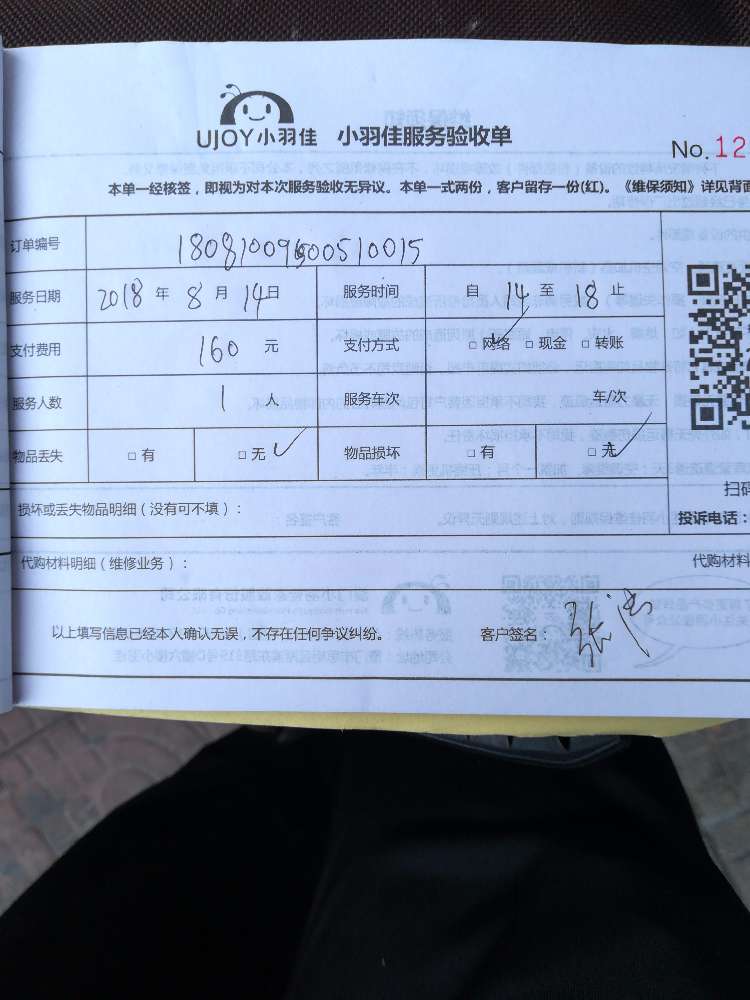 UJOY小羽佳 小羽佳服务验收单
No. 12
本单一经核签，即视为对本次服务验收无异议。本单一式两份，客户留存一份(红)。《维保须知》详见背面
订单编号
服务日期 2018 年 8 月 14 日 服务时间 自 14 至 18 止
支付费用 160 元 支付方式 □ 网络 □ 现金 □ 转账
服务人数 1 人 服务车次 车/次
物品丢失 □ 有 □ 无 物品损坏 □ 有 □ 无
扫码
损坏或丢失物品明细（没有可不填）：
投诉电话：
代购材料明细（维修业务）： 代购材料
以上填写信息已经本人确认无误，不存在任何争议纠纷。 客户签名： 张